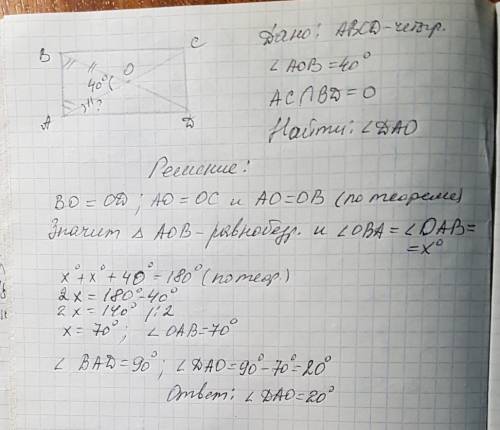 Дано: ABCD-четр.
∠AOB=40°
AC∩BD=O
Найти: ∠DAO
B
C
40°
O
?
A
D
Решение:
BO=OD; AO=OC и AO=OB (по теореме)
Значит △ AOB-равнобедр. и ∠OBA=∠OAB=
=x°
x°+x°+40°=180° (по теор.)
2x=180°-40°
2x=140° |:2
x=70°; ∠OAB=70°
∠BAD=90°; ∠DAO=90°-70°=20°
Ответ: ∠DAO=20°